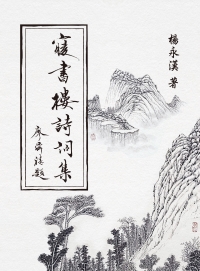 楊永漢 著
寢書樓詩詞集